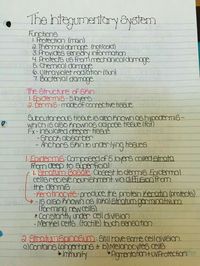 The Integumentary System
Functions
1. Protection (main)
2. Thermal damage (hot/cold)
3. Provides sensory information
4. Protects us from mechanical damage
5. Chemical damage
6. Ultraviolet radiation (sun)
7. Bacterial damage
The Structure of Skin
1. Epidermis - 5 layers
2. Dermis - made of connective tissue
Subcutaneous tissue is also known as hypodermis -
which is also known as adipose tissue (fat)
Fx - Insulated deeper tissue
- Shock absorber
- Anchors skin to underlying tissues
1. Epidermis Composed of 5 layers called strata
from deep to superficial
1. Stratum Basale Closest to dermis. Epidermal
cells receive nourishment via diffusion from
the dermis
Keratinocytes - produce the protein keratin (protects)
is also known as stratum germinativum
(forming new cells)
Constantly under cell division
Merkel cells (tactile) touch sensation
2. Stratum Spinosum Still have some cell division
Contains
Melanocytes cells
Immunity
Pigmentation + UV Protection